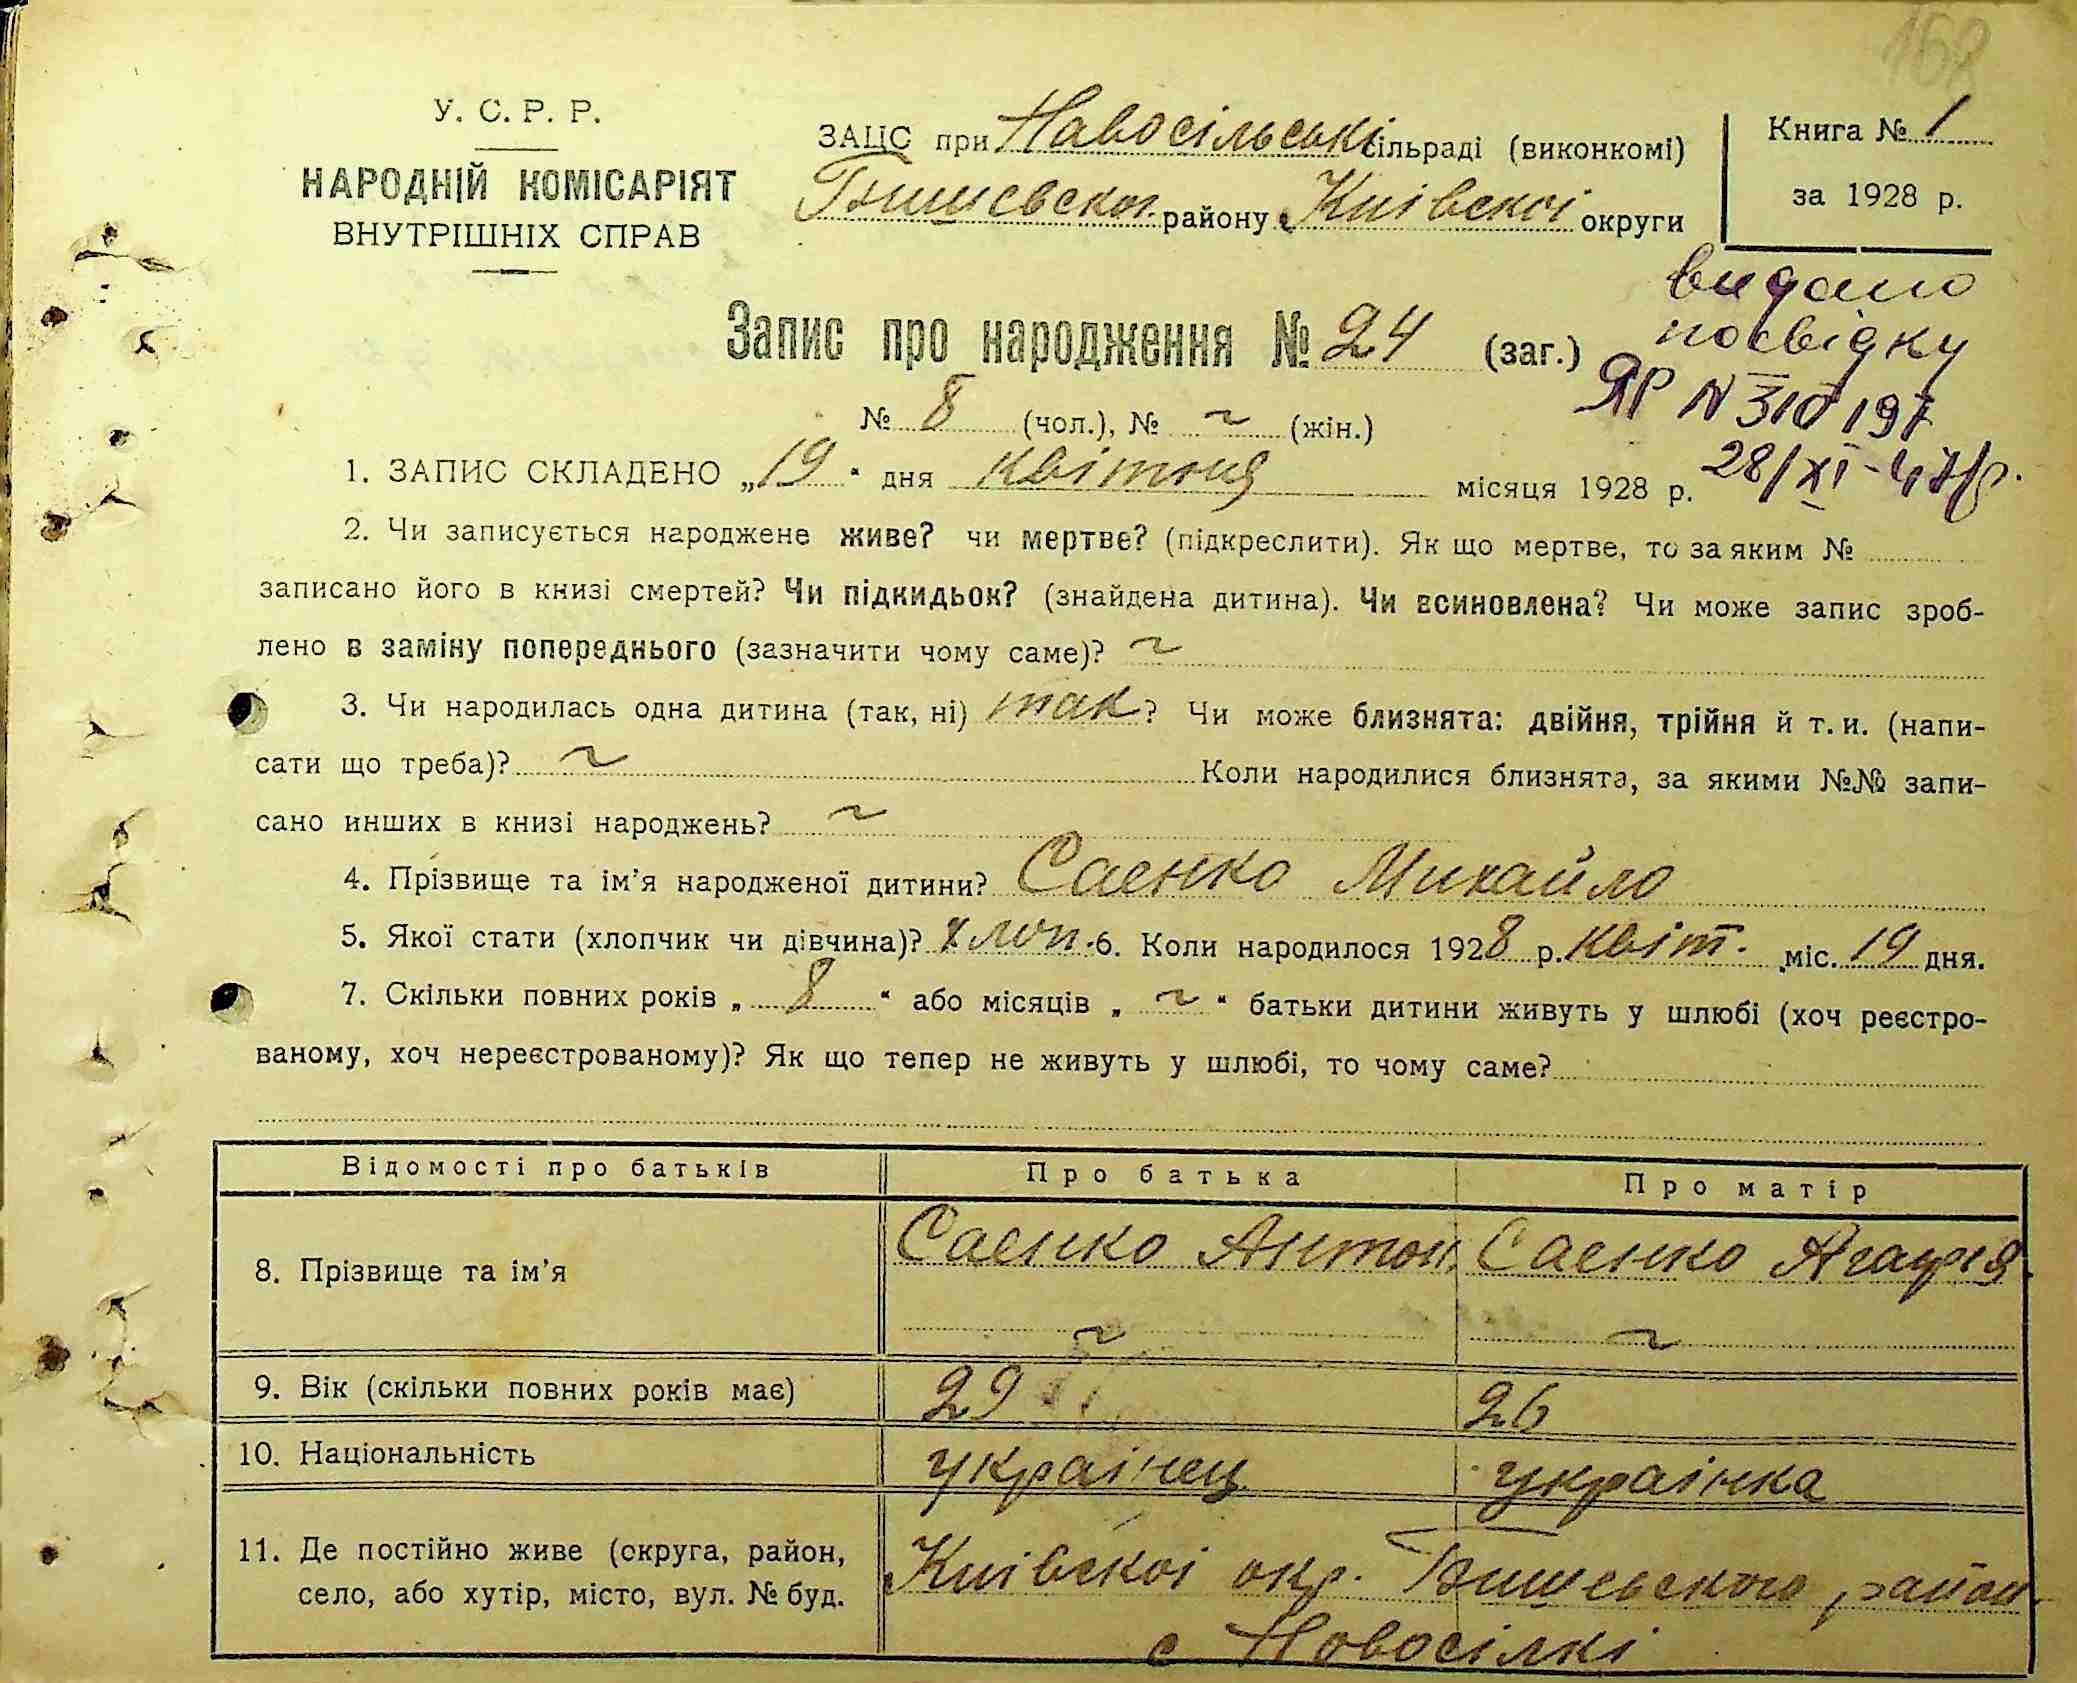 168
У. С. Р. Р.
НАРОДНІЙ КОМІСАРІЯТ
ВНУТРІШНІХ СПРАВ
ЗАЦС при Навосільські сільраді (виконкомі)
Бишевскої району Київскої округи
Книга № 1
за 1928 р.
видано
посвідку
ЯР N 310197
28/XI-47р.
Запис про народження № 24 (заг.)
№ 8 (чол.), № ~ (жін.)
1. ЗАПИС СКЛАДЕНО „19“ дня квітня місяця 1928 р.
2. Чи записується народжене живе? чи мертве? (підкреслити). Як що мертве, то за яким №
записано його в книзі смертей? Чи підкидьок? (знайдена дитина). Чи всиновлена? Чи може запис зроб-
лено в заміну попереднього (зазначити чому саме)? ~
3. Чи народилась одна дитина (так, ні) так? Чи може близнята: двійня, трійня й т. и. (напи-
сати що треба)? ~ Коли народилися близнята, за якими №№ запи-
сано инших в книзі народжень? ~
4. Прізвище та ім’я народженої дитини? Саенко Михайло
5. Якої стати (хлопчик чи дівчина)? хлоп. 6. Коли народилося 1928 р. квіт. міс. 19 дня.
7. Скільки повних років „ 8 “ або місяців „ ~ “ батьки дитини живуть у шлюбі (хоч реєстро-
ваному, хоч нереєстрованому)? Як що тепер не живуть у шлюбі, то чому саме?
Відомості про батьків Про батька Про матір
8. Прізвище та ім’я Саенко Антон. Саенко Агафія.
~ ~
9. Вік (скільки повних років має) 29 26
10. Національність украінец украінка
11. Де постійно живе (округа, район, Киівскоі окр. Бишевского район.
село, або хутір, місто, вул. № буд. с Новосілкі